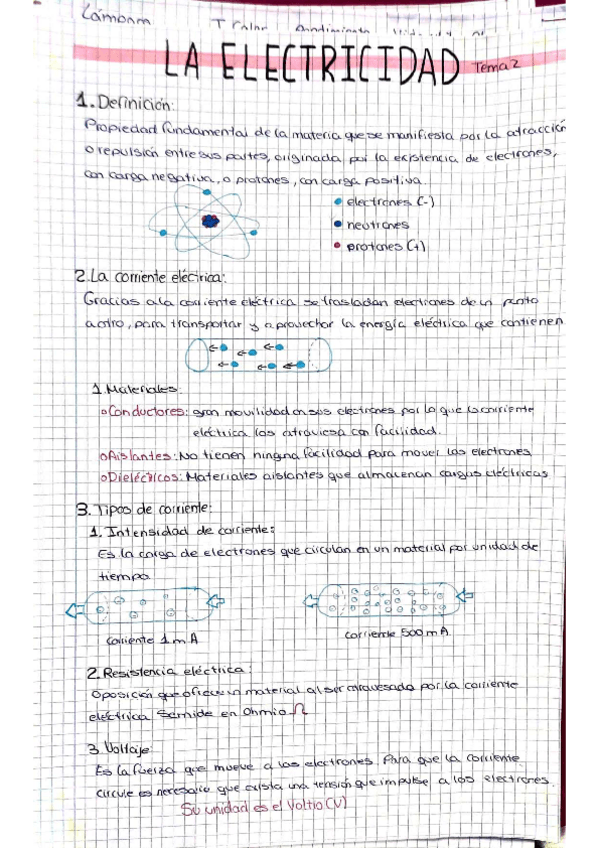 Lámpara
LA ELECTRICIDAD Tema 2
1. Definición:
Propiedad fundamental de la materia que se manifiesta por la atracción
o repulsión entre sus partes, originada por la existencia de electrones,
con carga negativa, o protones, con carga positiva.
electrones (-)
neutrones
protones (+)
2. La corriente eléctrica:
Gracias a la corriente eléctrica se trasladan electrones de un punto
a otro, para transportar y aprovechar la energía eléctrica que contienen
1. Materiales:
Conductores: gran movilidad en sus electrones por lo que la corriente
eléctrica los atraviesa con facilidad.
Aislantes: No tienen ninguna facilidad para mover los electrones
Dieléctricos: Materiales aislantes que almacenan cargas eléctricas
3. Tipos de corriente:
1. Intensidad de corriente:
Es la carga de electrones que circulan en un material por unidad de
tiempo.
corriente 1 mA
corriente 500 mA
2. Resistencia eléctrica:
Oposición que ofrece un material al ser atravesado por la corriente
eléctrica. Se mide en Ohmio Ω
3. Voltaje:
Es la fuerza que mueve a los electrones. Para que la corriente
circule es necesario que exista una tensión que impulse a los electrones.
Su unidad es el Voltio (V)